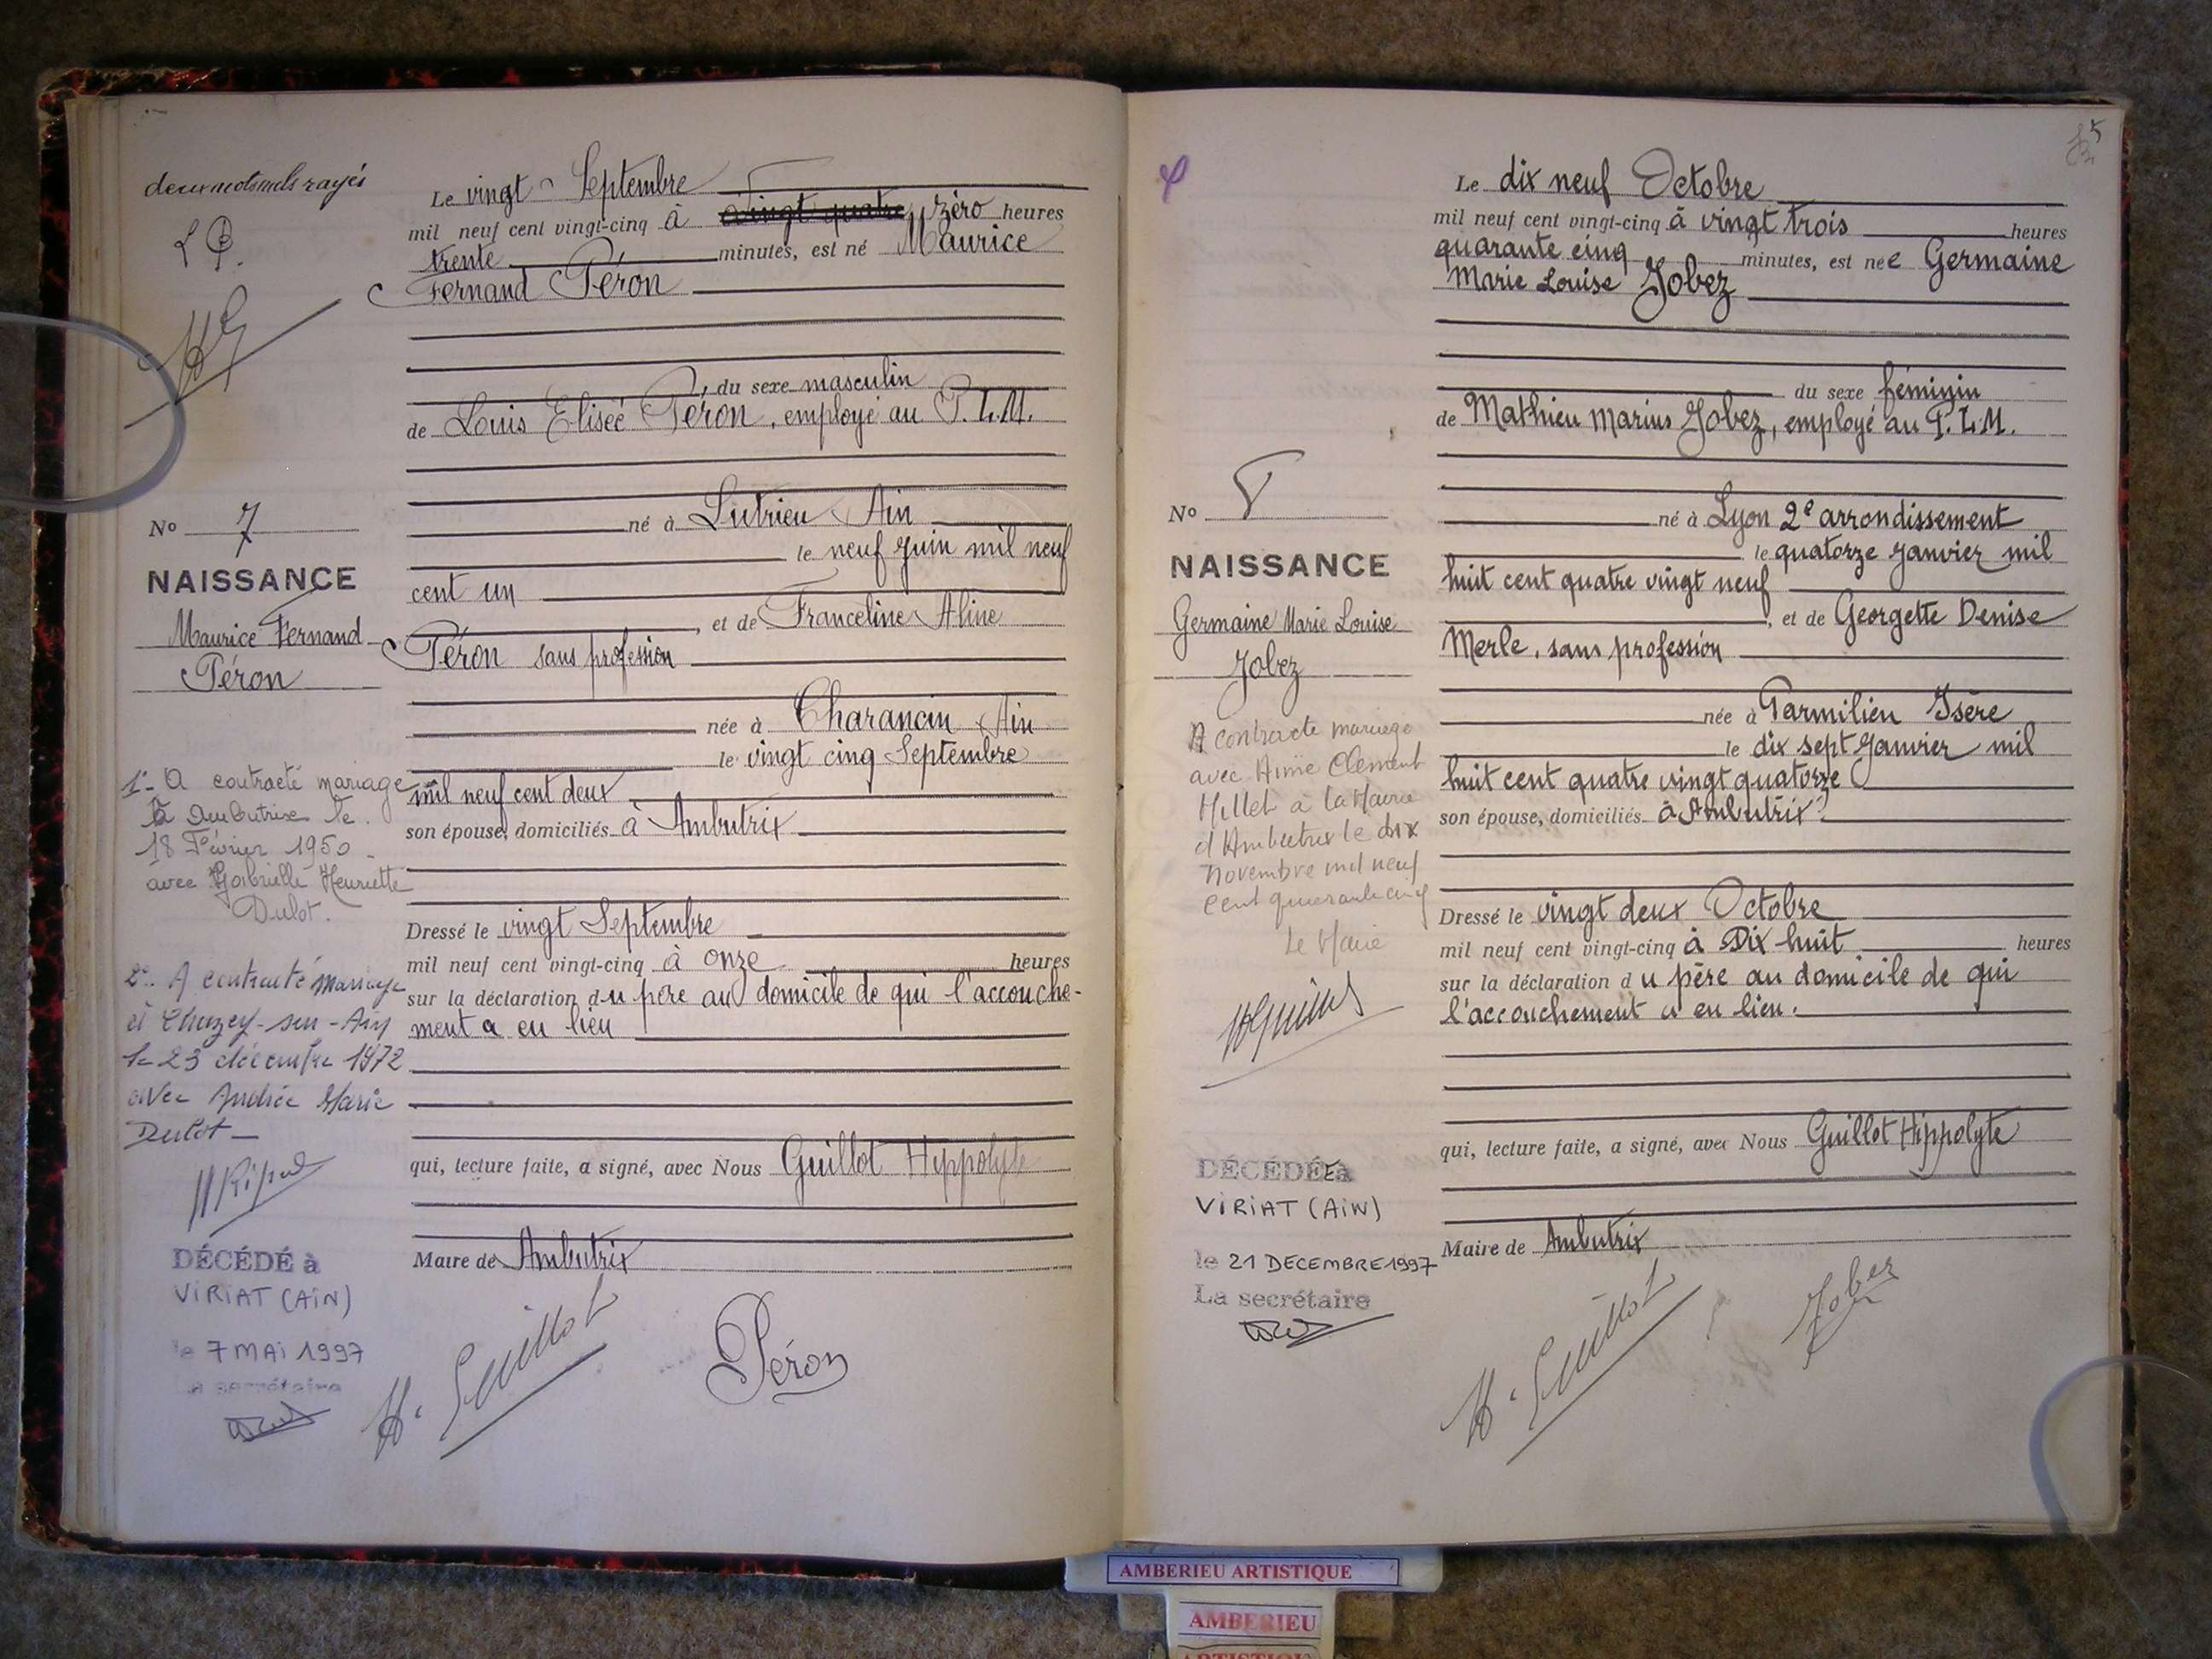 deux mots nuls rayés
L P.
HG
Le vingt Septembre
mil neuf cent vingt-cinq à vingt quatre zéro heures
trente minutes, est né Maurice
Fernand Péron
du sexe masculin
de Louis Elisée Péron, employé au P.L.M.
né à Lutrieu Ain
le neuf Juin mil neuf
cent un
, et de Franceline Aline
Péron sans profession
née à Charancin Ain
le vingt cinq Septembre
mil neuf cent deux
son épouse, domiciliés à Ambutrix
Dressé le vingt Septembre
mil neuf cent vingt-cinq à onze heures
sur la déclaration du père au domicile de qui l'accouche-
ment a eu lieu
qui, lecture faite, a signé, avec Nous Guillot Hippolyte
Maire de Ambutrix
H. Guillot
Péron
No 7
NAISSANCE
Maurice Fernand
Péron
1º- A contracté mariage
à Ambutrix le
18 Février 1950
avec Gabrielle Henriette
Dulot.
2º- A contracté mariage
à Chazey-sur-Ain
le 23 décembre 1972
avec Andrée Marie
Dulot-
DÉCÉDÉ à
VIRIAT (AIN)
le 7 MAI 1997
La secrétaire
5
Le dix neuf Octobre
mil neuf cent vingt-cinq à vingt trois heures
quarante cinq minutes, est née Germaine
Marie Louise Jobez
du sexe féminin
de Mathieu Marius Jobez, employé au P.L.M.
né à Lyon 2e arrondissement
le quatorze Janvier mil
huit cent quatre vingt neuf
, et de Georgette Denise
Merle, sans profession
née à Parmilieu Isère
le dix sept Janvier mil
huit cent quatre vingt quatorze
son épouse, domiciliés à Ambutrix
Dressé le vingt deux Octobre
mil neuf cent vingt-cinq à Dix huit heures
sur la déclaration du père au domicile de qui
l'accouchement a eu lieu.
qui, lecture faite, a signé, avec Nous Guillot Hippolyte
Maire de Ambutrix
H. Guillot
Jobez
No 8
NAISSANCE
Germaine Marie Louise
Jobez
A contracté mariage
avec Aimé Clément
Millet à la Mairie
d'Ambutrix le dix
novembre mil neuf
cent quarante cinq
Le Maire
DÉCÉDÉE à
VIRIAT (AIN)
le 21 DECEMBRE 1997
La secrétaire
AMBERIEU ARTISTIQUE
AMBERIEU
ARTISTIQUE